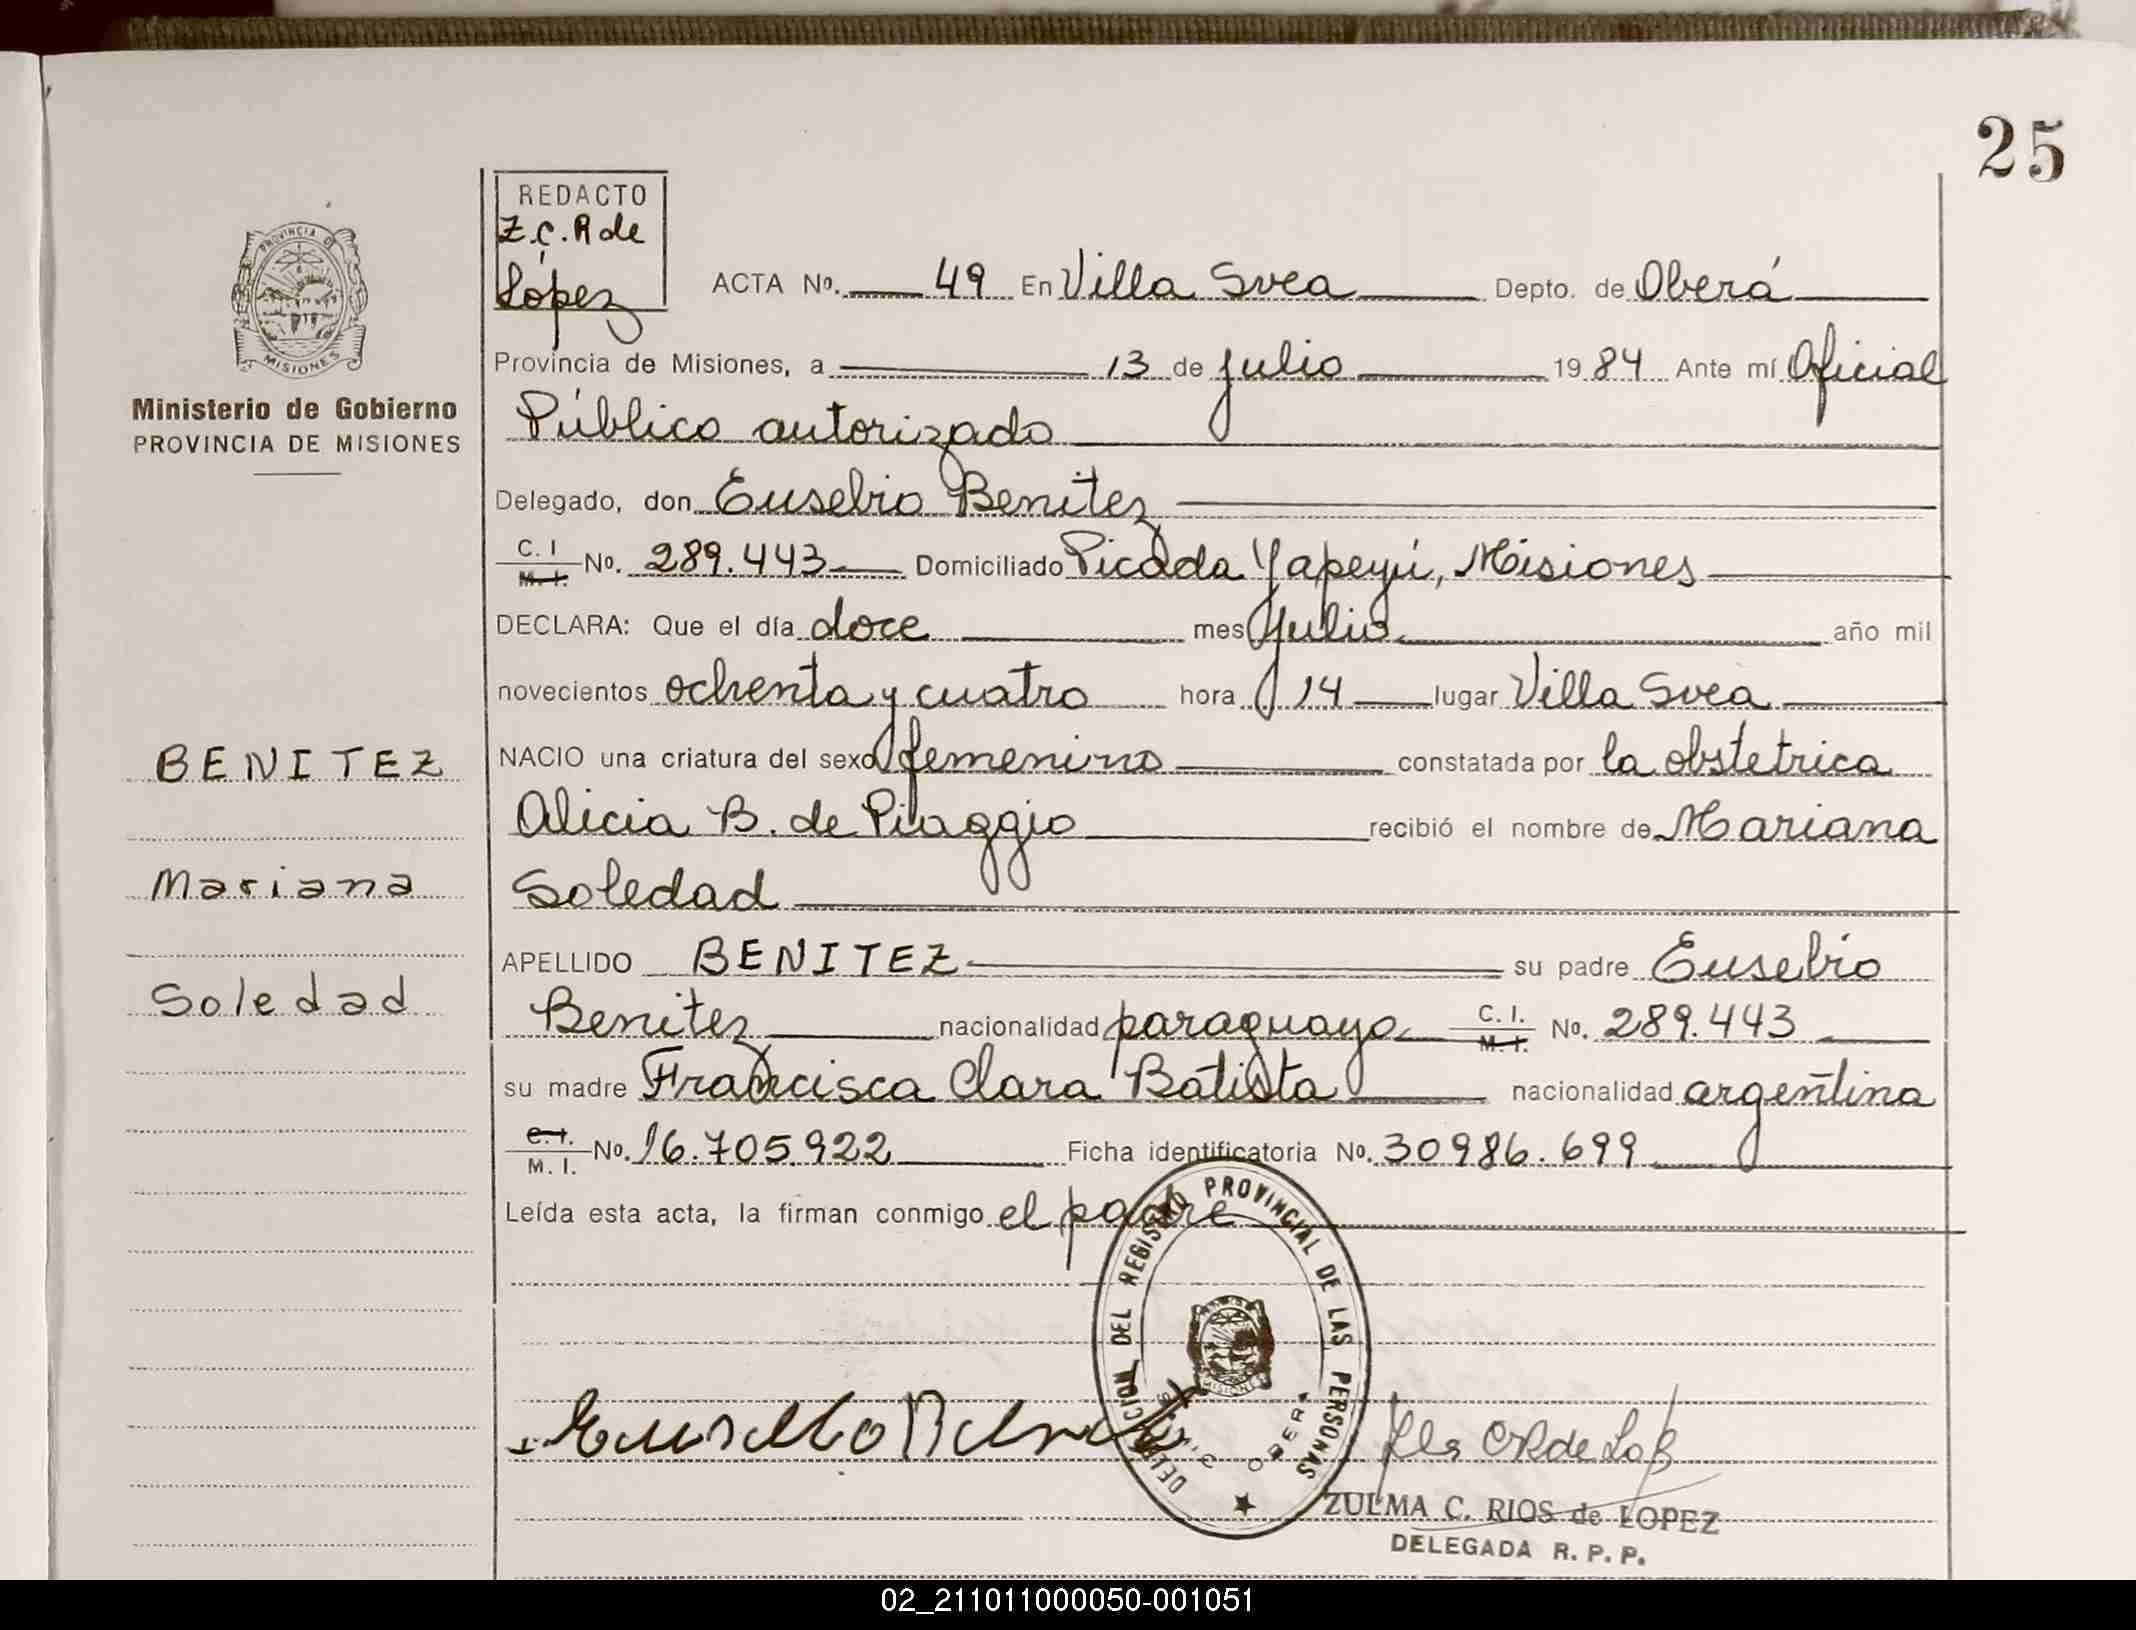 25
REDACTO
Z.C.R de
López
ACTA No. 49 En Villa Svea Depto. de Oberá
Provincia de Misiones, a 13 de julio 1984 Ante mí Oficial
Público autorizado
Delegado, don Eusebio Benitez
C. I M. I. No. 289.443 Domiciliado Picada Yapeyú, Misiones
DECLARA: Que el día doce mes Julio año mil
novecientos ochenta y cuatro hora 14 lugar Villa Svea
NACIO una criatura del sexo femenino constatada por la obstetrica
Alicia B. de Piaggio recibió el nombre de Mariana
Soledad
APELLIDO BENITEZ su padre Eusebio
Benitez nacionalidad paraguaya C. I. M. I. No. 289.443
su madre Francisca Clara Batista nacionalidad argentina
C. I. M. I. No. 16.705.922 Ficha identificatoria No. 30986.699
Leída esta acta, la firman conmigo el padre
PROVINCIA DE
MISIONES
Ministerio de Gobierno
PROVINCIA DE MISIONES
BENITEZ
Mariana
Soledad
DELEGACION DEL REGISTRO PROVINCIAL DE LAS PERSONAS
MISIONES
OBERA
Eusebio Benitez
ZULMA C. RIOS de LOPEZ
DELEGADA R. P. P.
02_211011000050-001051